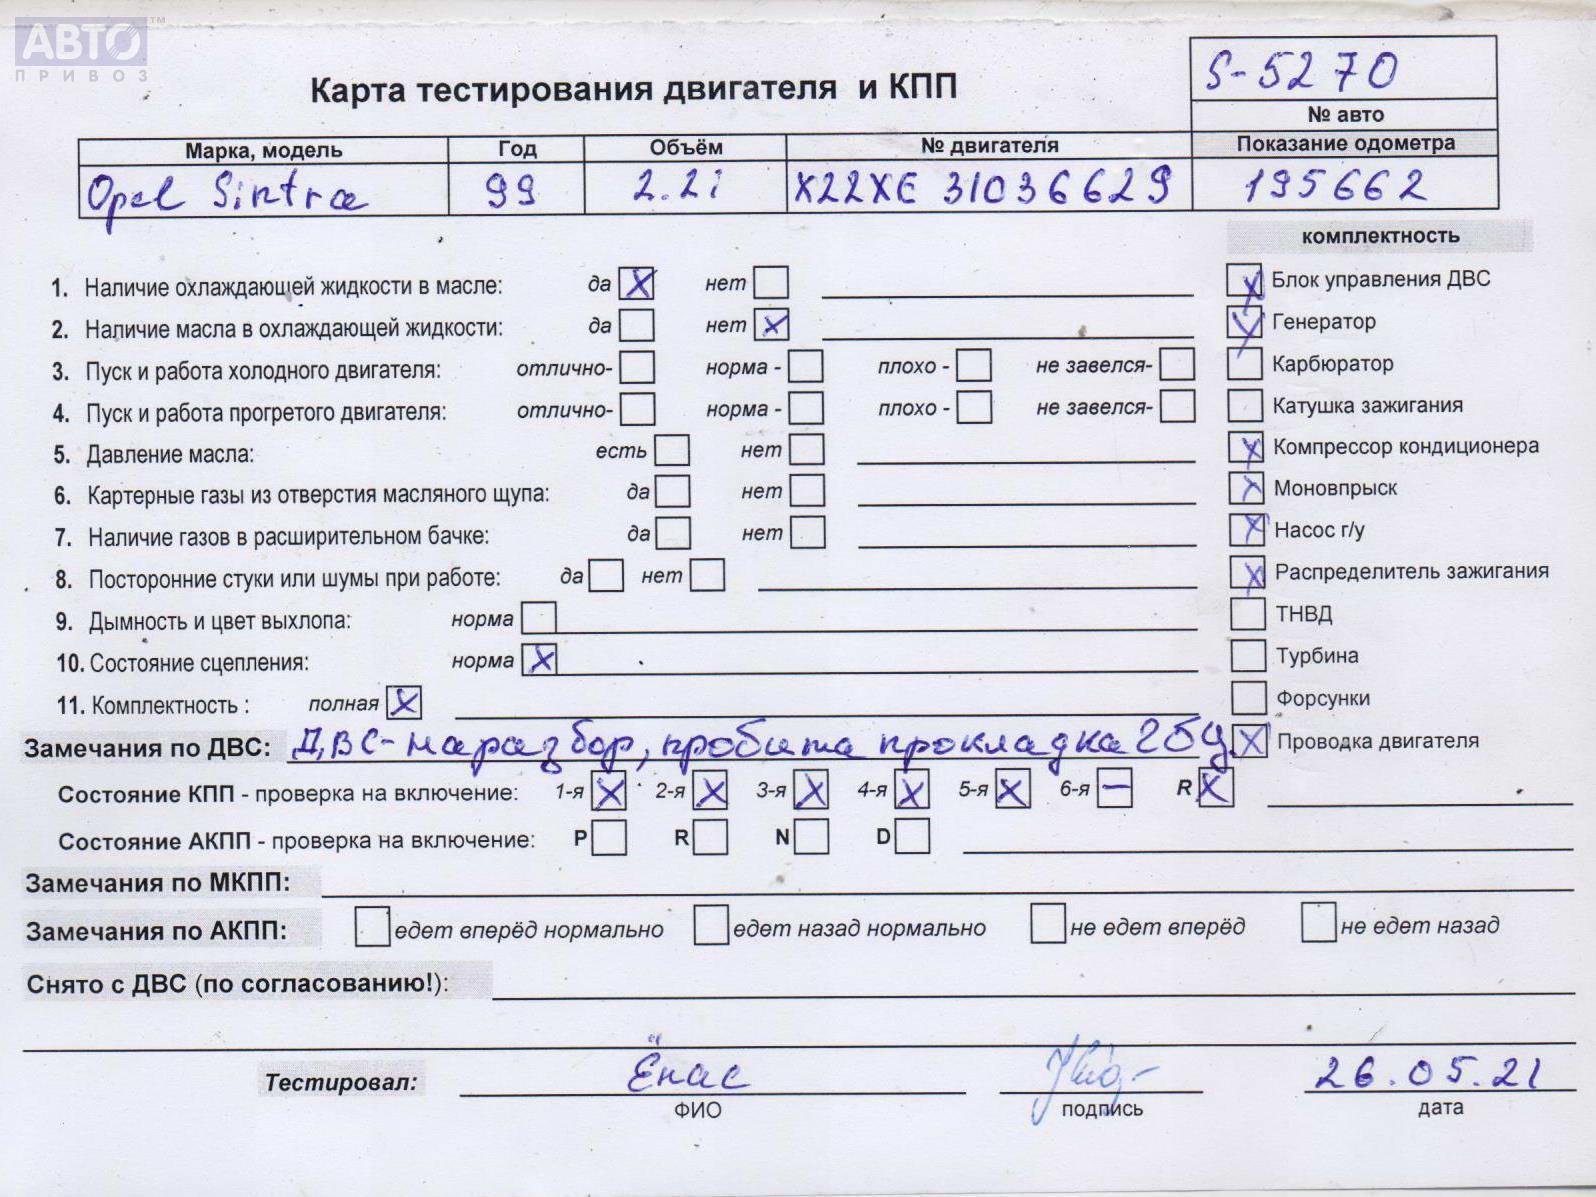 АВТО™
ПРИВОЗ
S-5270
Карта тестирования двигателя и КПП
№ авто
Марка, модель Год Объём № двигателя Показание одометра
Opel Sintra 99 2.2i X22XE 31036629 195662
комплектность
1. Наличие охлаждающей жидкости в масле: да X нет
Блок управления ДВС X
2. Наличие масла в охлаждающей жидкости: да нет X
Генератор X
3. Пуск и работа холодного двигателя: отлично- норма - плохо - не завелся-
Карбюратор
4. Пуск и работа прогретого двигателя: отлично- норма - плохо - не завелся-
Катушка зажигания
5. Давление масла: есть нет
X Компрессор кондиционера
6. Картерные газы из отверстия масляного щупа: да нет
X Моновпрыск
7. Наличие газов в расширительном бачке: да нет
X Насос г/у
8. Посторонние стуки или шумы при работе: да нет
X Распределитель зажигания
9. Дымность и цвет выхлопа: норма
ТНВД
10. Состояние сцепления: норма X
Турбина
11. Комплектность : полная X
Форсунки
Замечания по ДВС: ДВС- на разбор, пробита прокладка ГБЦ.
X Проводка двигателя
Состояние КПП - проверка на включение: 1-я X 2-я X 3-я X 4-я X 5-я X 6-я — R X
Состояние АКПП - проверка на включение: P R N D
Замечания по МКПП:
Замечания по АКПП: едет вперёд нормально едет назад нормально не едет вперёд не едет назад
Снято с ДВС (по согласованию!):
Тестировал: Ёнас 26.05.21
ФИО подпись дата